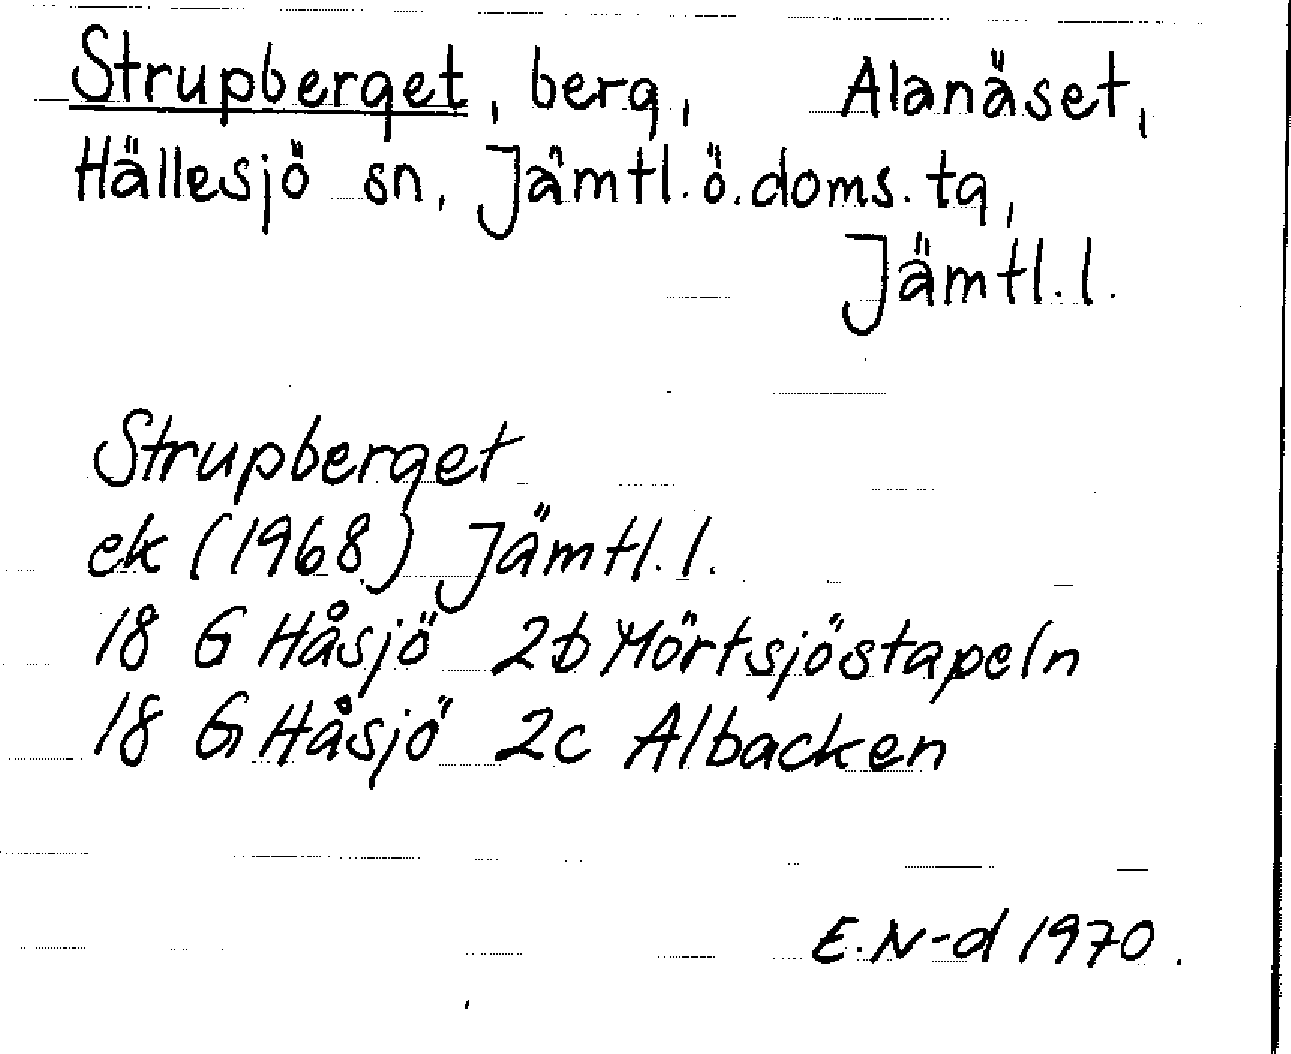 Strupberget, berg, Alanäset,
Hällesjö sn, Jämtl.ö.doms.tg,
Jämtl.l.
Strupberget
ek (1968) Jämtl.l.
18 G Håsjö 2b Mörtsjöstapeln
18 G Håsjö 2c Albacken
E.N-d 1970.